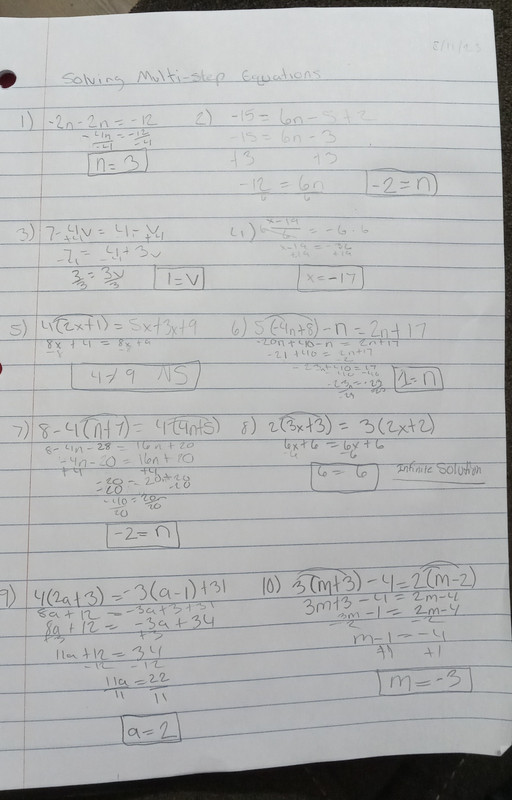 Solving Multi-step Equations
1) -2n-2n=-12
-4n=-12
-4 -4
n=3
2) -15=6n-5+2
-15=6n-3
+3 +3
-12=6n
6 6
-2=n
3) 7-4v=4-v
+4v +4
7=4+3v
3=3v
3 3
1=v
= -6·6
x=-17
5) 4(2x+1)=5x+3x+9
8x+4=8x+9
4≠9 NS
6) 5(-4n+8)-n=2n+17
-20n+40-n=2n+17
-21+40=2n+17
1=n
7) 8-4(n+7)=4(4n+5)
8-4n-28=16n+20
-4n-20=16n+20
+4 +4
-20=20n+20
-20 -20
-40=20n
20 20
-2=n
8) 2(3x+3)=3(2x+2)
6x+6=6x+6
6=6
Infinite Solution
9) 4(2a+3)=-3(a-1)+31
8a+12=-3a+3+31
8a+12=-3a+34
+3 +3
11a+12=34
-12 -12
11a=22
11 11
a=2
10) 3(m+3)-4=2(m-2)
3m+3-4=2m-4
3m-1=2m-4
-2 -2
m-1=-4
+1 +1
m=-3